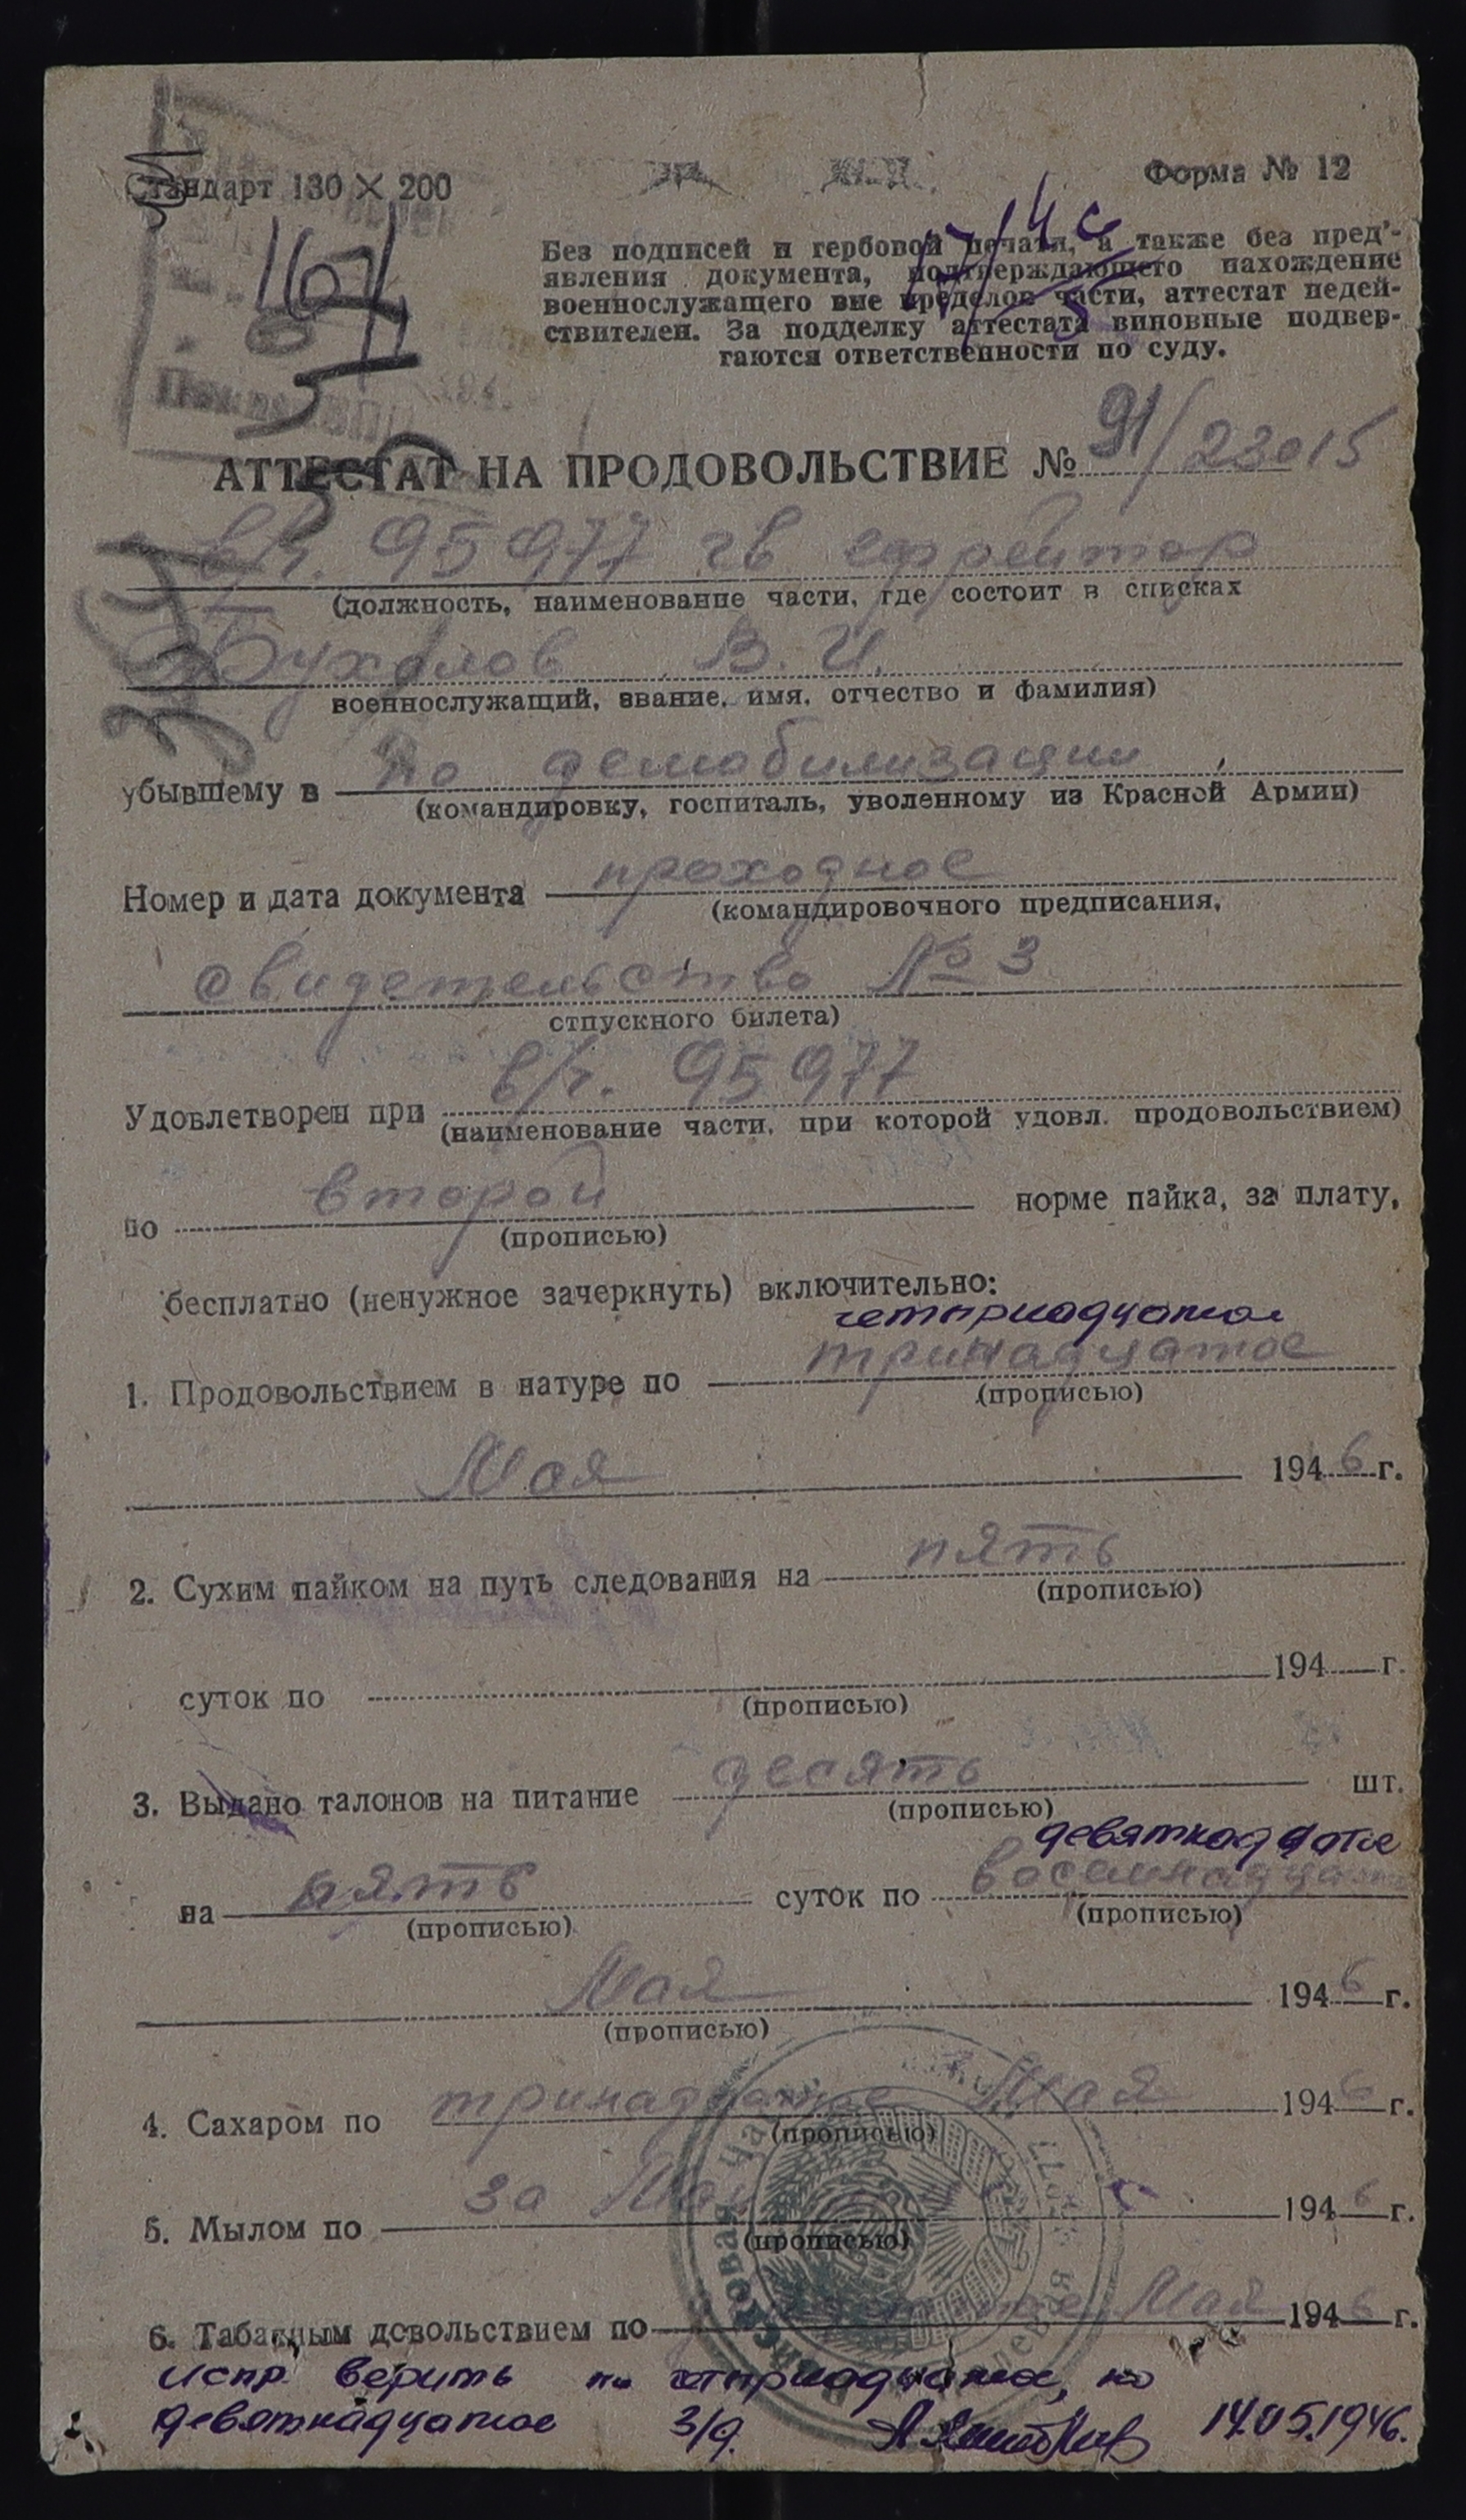 Стандарт 130 × 200
Форма № 12
Без подписей и гербовой печати, а также без пред'-
явления документа, подтверждающего нахождение
военнослужащего вне пределов части, аттестат недей-
ствителен. За подделку аттестата виновные подвер-
гаются ответственности по суду.
АТТЕСТАТ НА ПРОДОВОЛЬСТВИЕ № 91/23015
в/ч. 95977 гв ефрейтор
(должность, наименование части, где состоит в списках
Бухалов В. И.
военнослужащий, звание, имя, отчество и фамилия)
убывшему в по демобилизации
(командировку, госпиталь, уволенному из Красной Армии)
Номер и дата документа проходное
(командировочного предписания,
свидетельство № 3
отпускного билета)
Удовлетворен при в/ч. 95977
(наименование части, при которой удовл. продовольствием)
по второй норме пайка, за плату,
(прописью)
бесплатно (ненужное зачеркнуть) включительно:
четырнадцатое
1. Продовольствием в натуре по тринадцатое
(прописью)
Мая 1946 г.
2. Сухим пайком на путь следования на пять
(прописью)
суток по 194 г.
(прописью)
3. Выдано талонов на питание десять шт.
(прописью)
девятнадцатое
на пять суток по восемнадцатое
(прописью) (прописью)
Мая 1946 г.
(прописью)
4. Сахаром по тринадцатое Мая 1946 г.
(прописью)
5. Мылом по за Май 1946 г.
(прописью)
6. Табачным довольствием по Мая 1946 г.
испр. верить по четырнадцатое, по
девятнадцатое 14.05.1946.